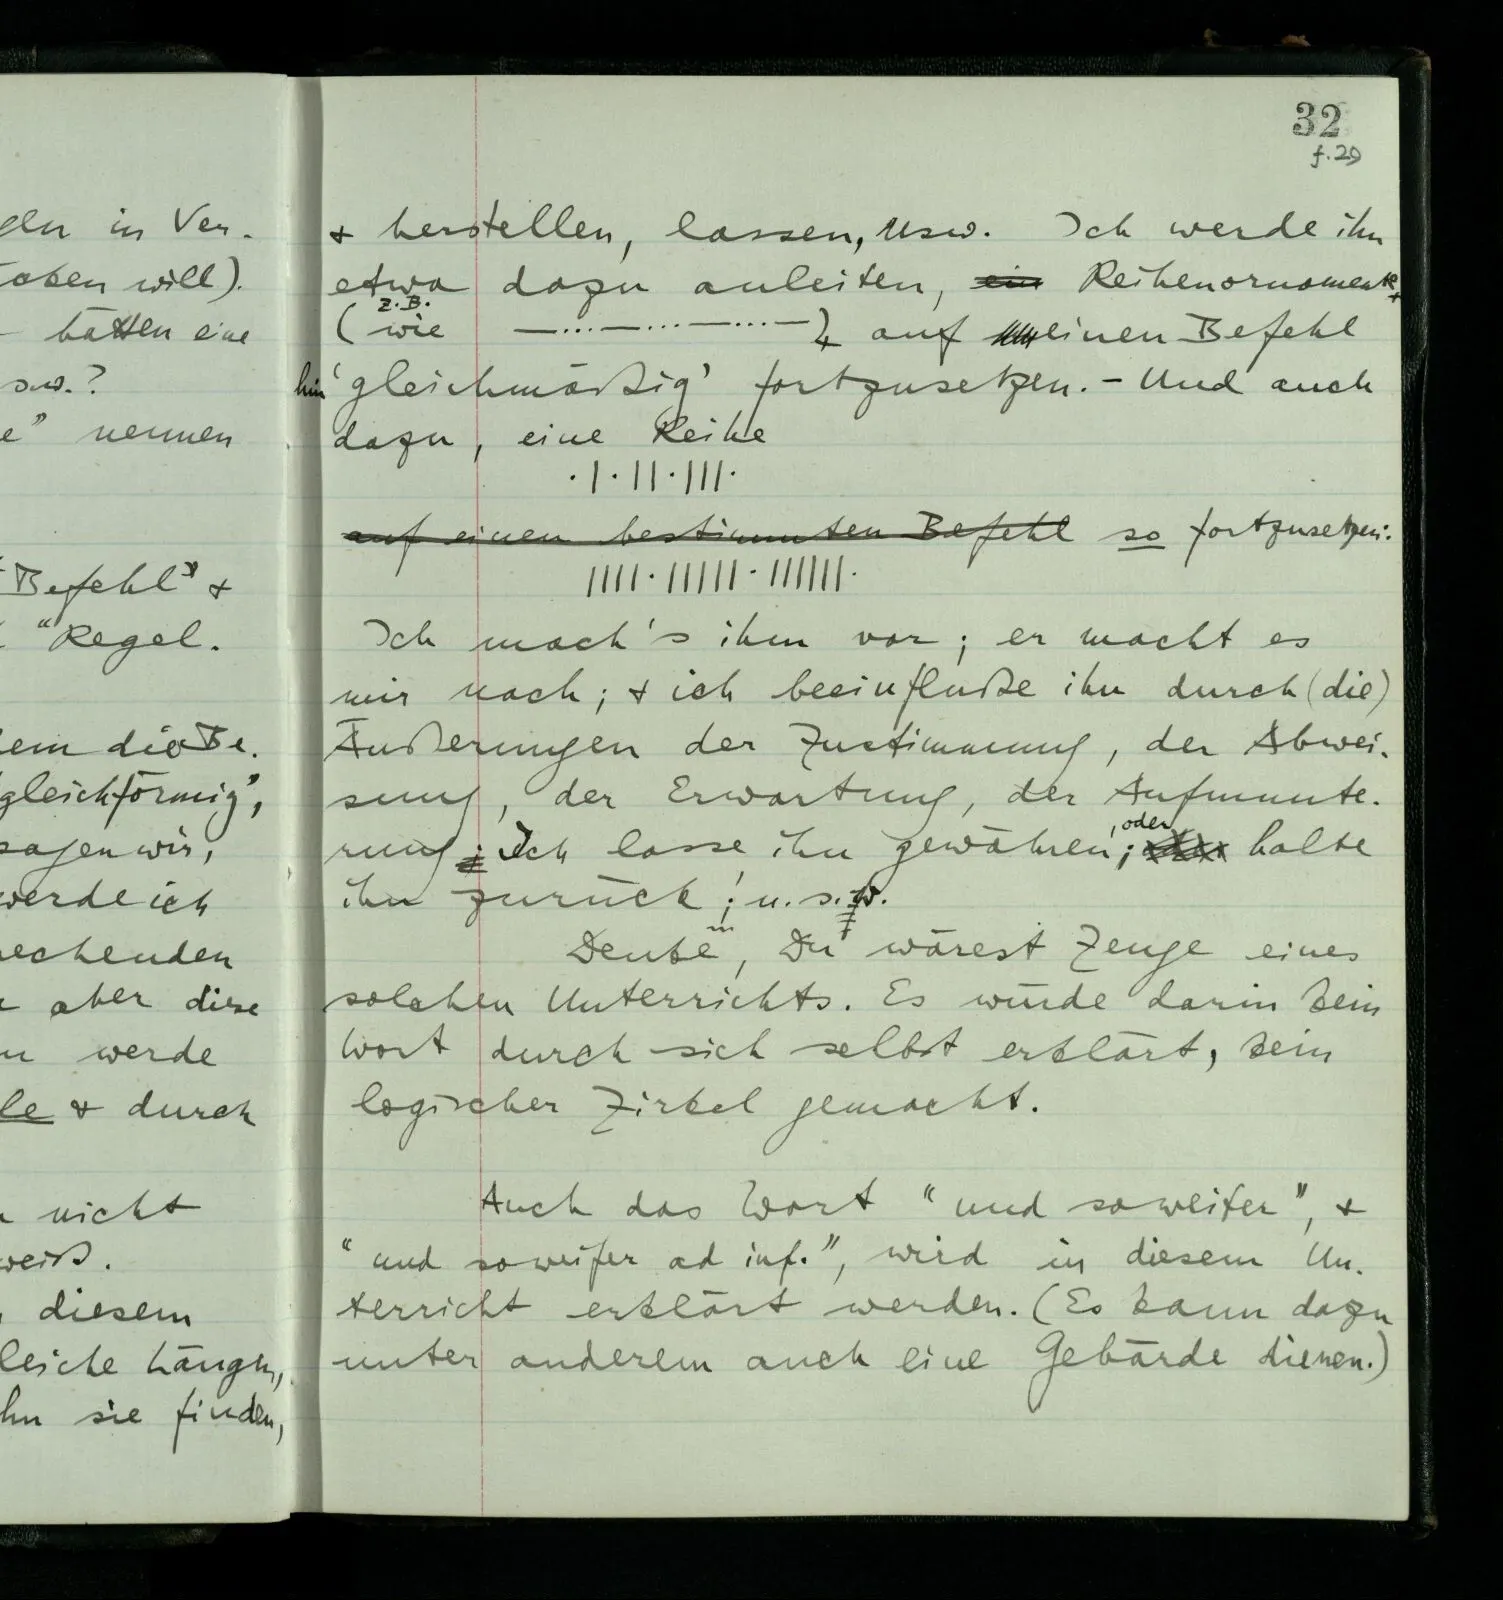 gen in Ver-
haben will).
hätten eine
usw.?
e" nennen
Befehl" &
"Regel.
dem die Be-
'gleichförmig',
sagen wir,
werde ich
rechenden
aber diese
werde
le & durch
nicht
weiß.
diesem
leiche Längen,
ihn sie finden,
32
f.29
& herstellen, lassen, usw. Ich werde ihn
etwa dazu anleiten, ein Reihenornamente,
(wie z.B. —...—...—...—), auf einen Befehl
hin 'gleichmäßig' fortzusetzen. – Und auch
dazu, eine Reihe
·|·||·|||·
auf einen bestimmten Befehl so fortzusetzen:
||||·|||||·||||||·
Ich mach's ihm vor; er macht es
mir nach; & ich beeinfluße ihn durch (die)
Äußerungen der Zustimmung, der Abwei-
sung, der Erwartung, der Aufmunte-
rung; Ich lasse ihn gewähren, oder halte
ihn zurück; u.s.w.
Denke, Du wärest Zeuge eines
solchen Unterrichts. Es würde darin kein
Wort durch sich selbst erklärt, kein
logischer Zirkel gemacht.
Auch das Wort "und so weiter", &
"und so weiter ad inf.", wird in diesem Un-
terricht erklärt werden. (Es kann dazu
unter anderem auch eine Gebärde dienen.)